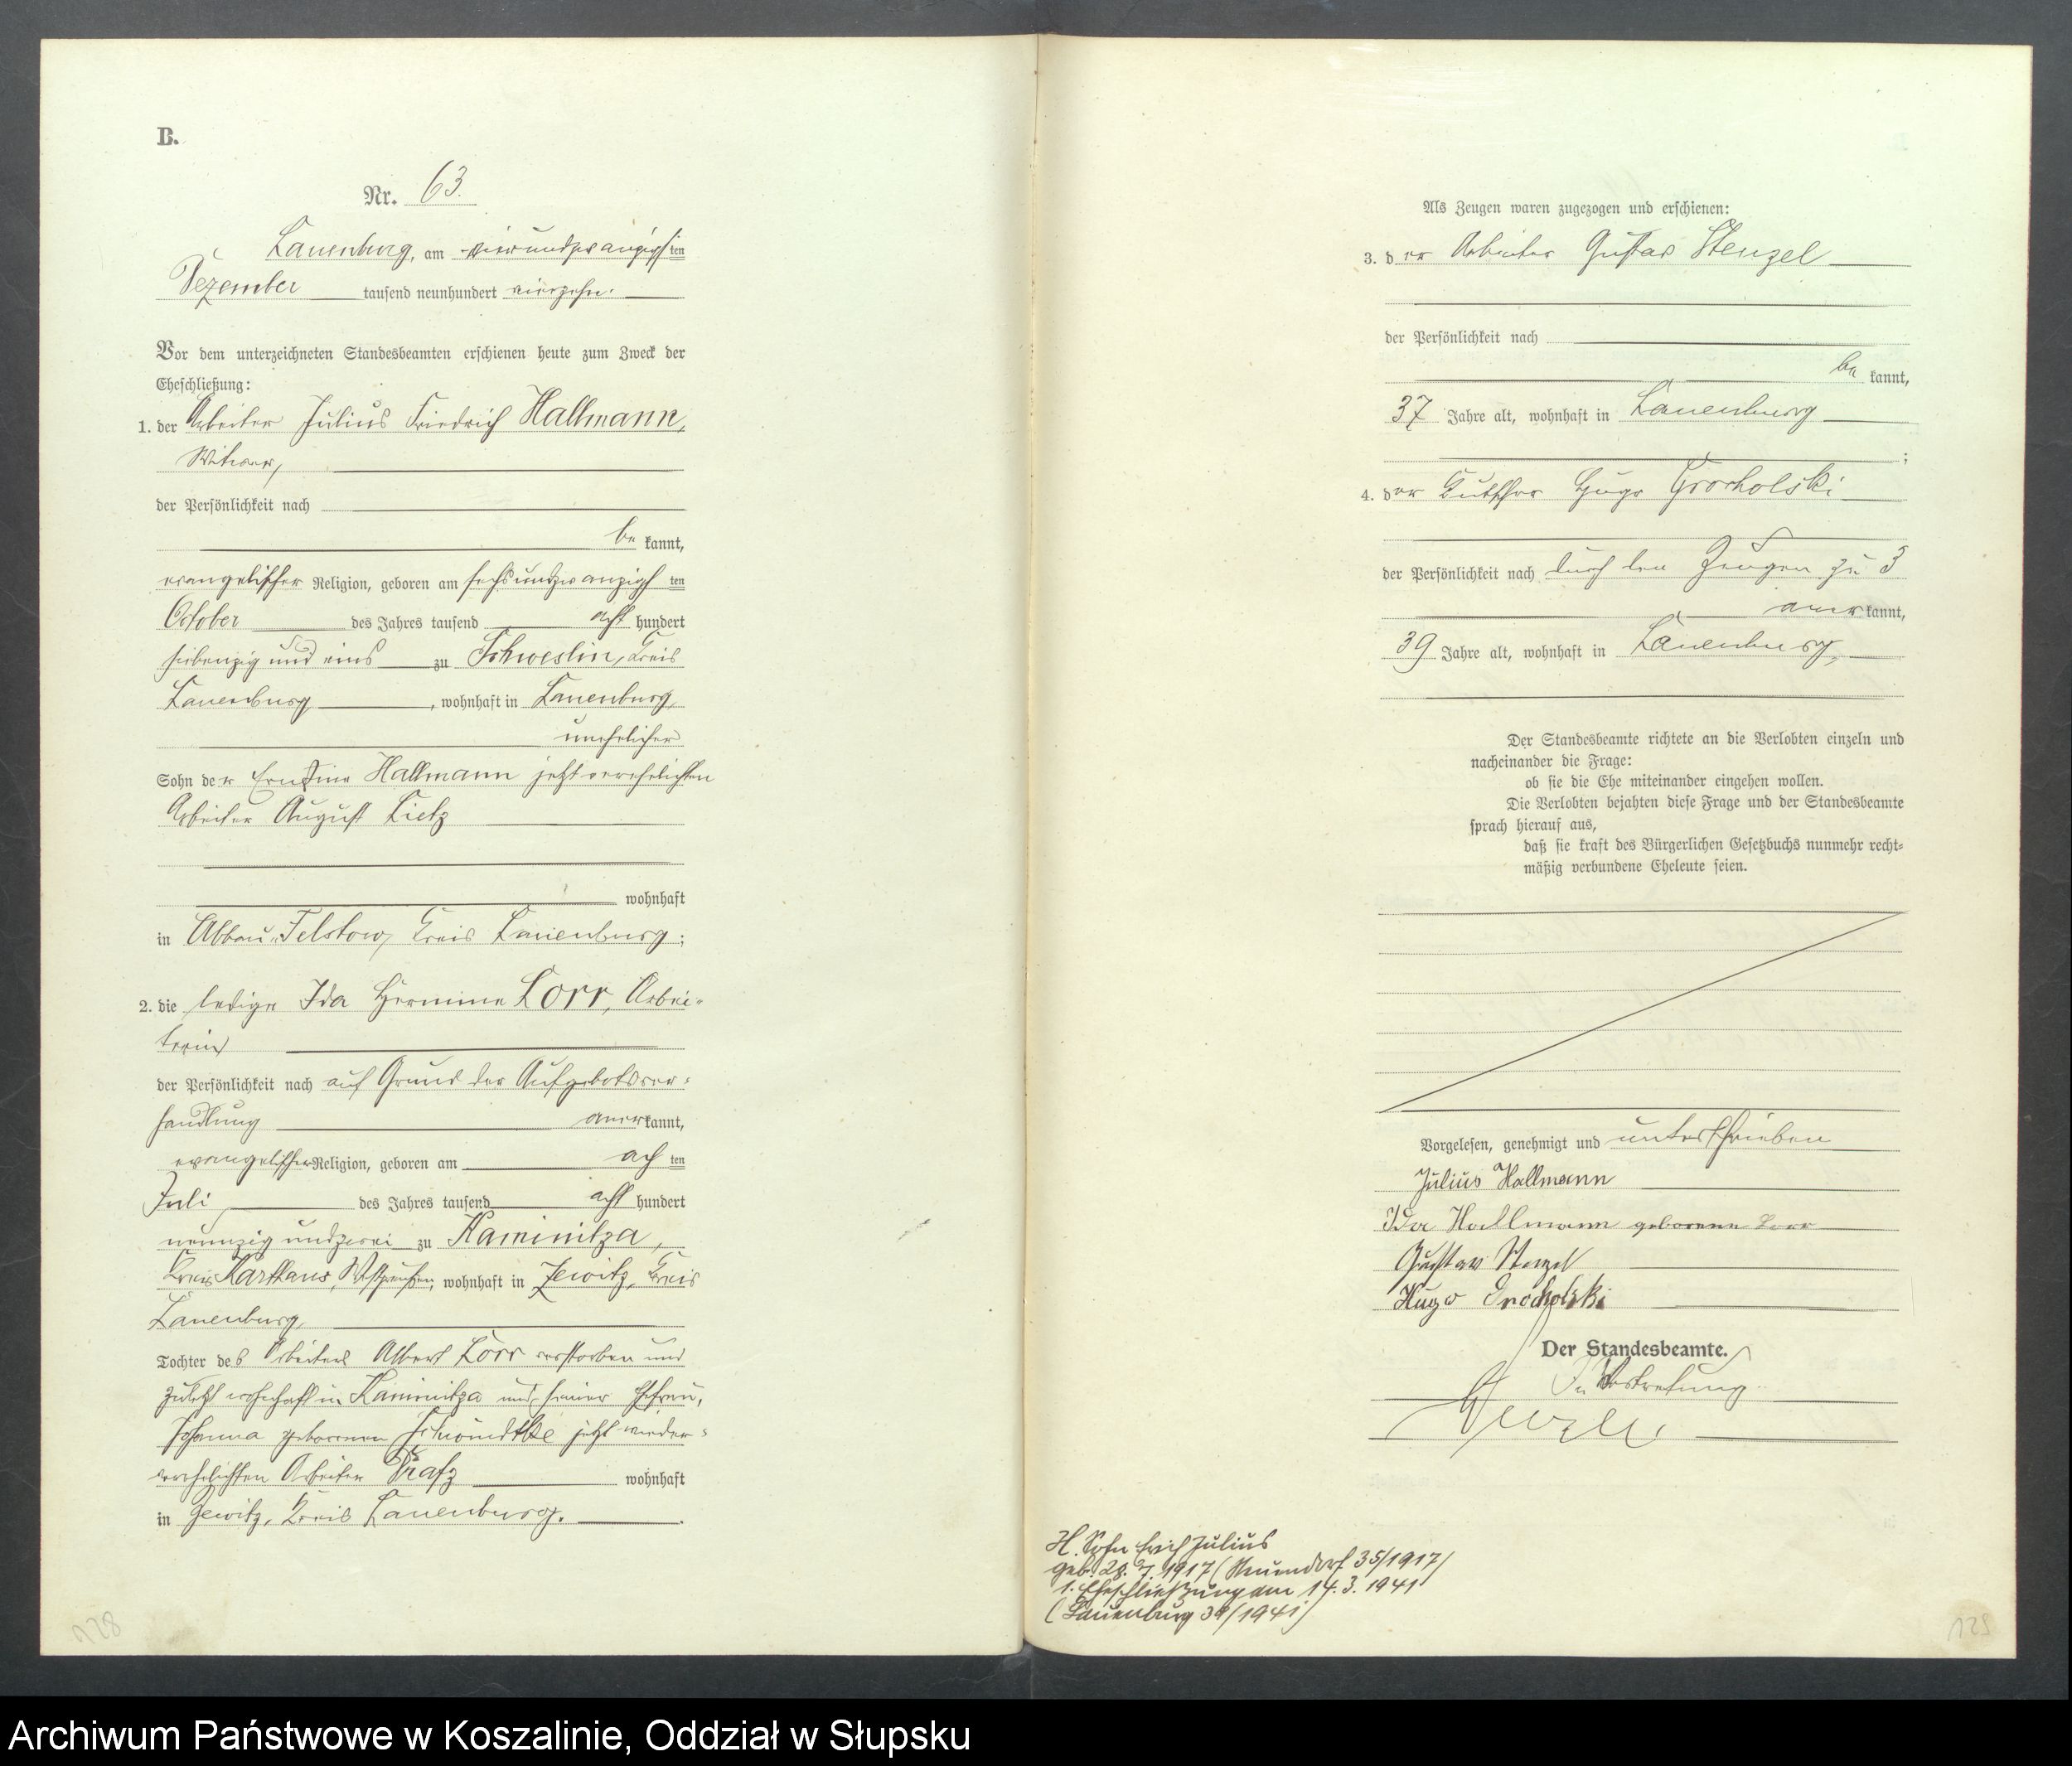 B.
Nr. 63.
Lauenburg, am vierundzwanzigsten
Dezember tausend neunhundert vierzehn.
Vor dem unterzeichneten Standesbeamten erschienen heute zum Zweck der
Eheschließung:
1. der Arbeiter Julius Friedrich Hallmann,
Witwer,
der Persönlichkeit nach
be kannt,
evangelischer Religion, geboren am sechsundzwanzigsten
October des Jahres tausend acht hundert
siebenzig und eins zu Schweslin, Kreis
Lauenburg, wohnhaft in Lauenburg,
unehelicher
Sohn der Ernstine Hallmann jetzt verehelichten
Arbeiter August Lietz
wohnhaft
in Abbau Felstow, Kreis Lauenburg;
2. die ledige Ida Hermine Lorr, Arbei-
terin
der Persönlichkeit nach auf Grund der Aufgebotsver-
handlung anerkannt,
evangelischer Religion, geboren am ach ten
Juli des Jahres tausend acht hundert
neunzig und zwei zu Kaminitza,
Kreis Karthaus, Westpreußen, wohnhaft in Jewitz, Kreis
Lauenburg,
Tochter des Arbeiters Albert Lorr verstorben und
zuletzt wohnhaft in Kaminitza und seiner Ehefrau,
Johanna geborenen jetzt wieder-
verehelichten Arbeiter wohnhaft
in Jewitz, Kreis Lauenburg.
128
Als Zeugen waren zugezogen und erschienen:
3. der Arbeiter Gustav Stenzel
der Persönlichkeit nach
be kannt,
37 Jahre alt, wohnhaft in Lauenburg
;
4. der Kutscher Hugo Grocholski
der Persönlichkeit nach durch den Zeugen zu 3
anerkannt,
39 Jahre alt, wohnhaft in Lauenburg,
Der Standesbeamte richtete an die Verlobten einzeln und
nacheinander die Frage:
ob sie die Ehe miteinander eingehen wollen.
Die Verlobten bejahten diese Frage und der Standesbeamte
sprach hierauf aus,
daß sie kraft des Bürgerlichen Gesetzbuchs nunmehr recht-
mäßig verbundene Eheleute seien.
Vorgelesen, genehmigt und unterschrieben
Julius Hallmann
Ida Hallmann geborene Lorr
Gustav Stenzel
Hugo Grocholski
Der Standesbeamte.
In Vertretung
H. Sohn Erich Julius
geb. 28. 7. 1917 (Neuendorf 35/1917)
1. Eheschließung am 14. 3. 1941
(Lauenburg 39/1941)
129
Archiwum Państwowe w Koszalinie, Oddział w Słupsku